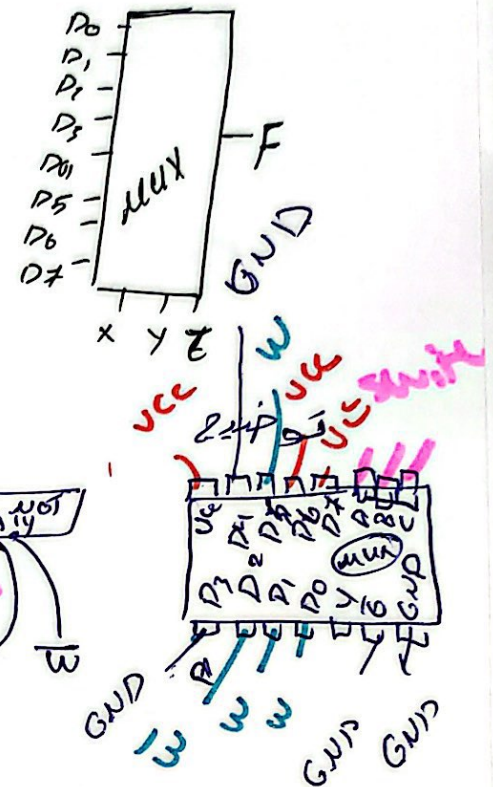 D0
D1
D2
D3
D4
D5
D6
D7
MUX
F
X Y Z
GND
W
VCC
VCC
VCC
NOT
W̅
VCC D4 D5 D6 D7 A B C
MUX
D3 D2 D1 D0 Y W̅ G GND
GND
W̅
W
W
GND
GND